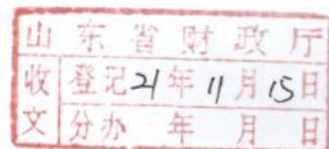 山东省财政厅
收文 登记21年11月15日
分办 年 月 日